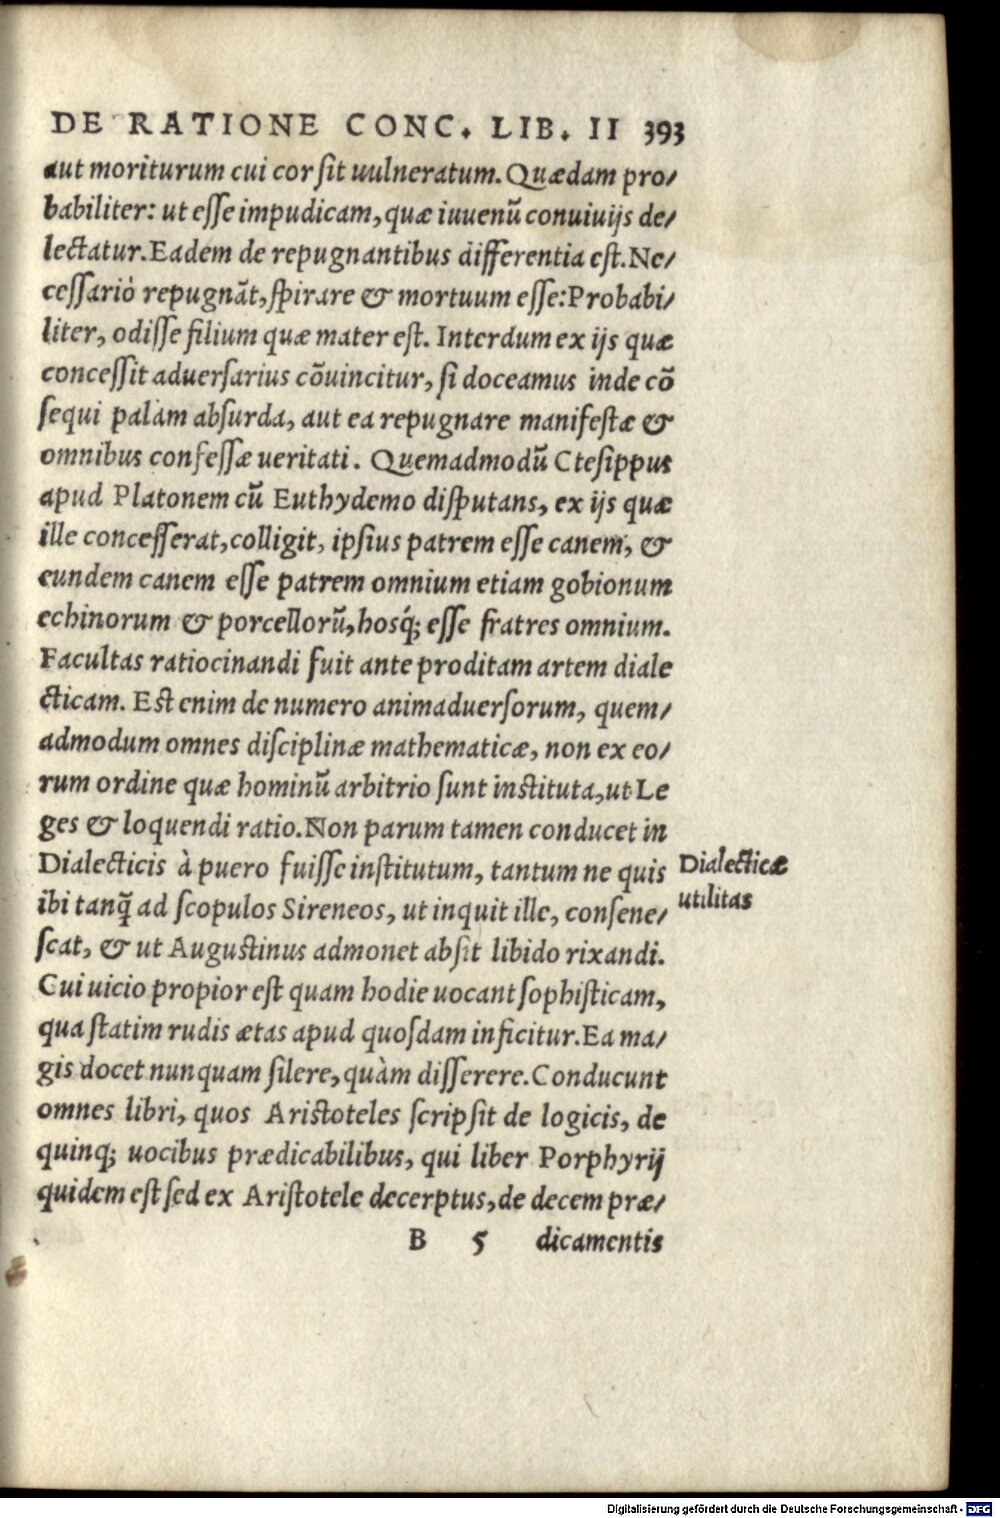 DE RATIONE CONC. LIB. II 393
aut moriturum cui cor ſit uulneratum. Quædam pro/
babiliter: ut eſſe impudicam, quæ iuuenũ conuiuijs de/
lectatur. Eadem de repugnantibus differentia eſt. Ne/
ceſſariò repugnãt, ſpirare & mortuum eſſe: Probabi/
liter, odiſſe filium quæ mater eſt. Interdum ex ijs quæ
conceſſit aduerſarius cõuincitur, ſi doceamus inde cõ
ſequi palàm abſurda, aut ea repugnare manifeſtæ &
omnibus confeſſæ ueritati. Quemadmodũ Cteſippus
apud Platonem cũ Euthydemo diſputans, ex ijs quæ
ille conceſſerat, colligit, ipſius patrem eſſe canem, &
eundem canem eſſe patrem omnium etiam gobionum
echinorum & porcellorũ, hosq́; eſſe fratres omnium.
Facultas ratiocinandi fuit ante proditam artem diale
cticam. Eſt enim de numero animaduerſorum, quem/
admodum omnes diſciplinæ mathematicæ, non ex eo/
rum ordine quæ hominũ arbitrio ſunt inſtituta, ut Le
ges & loquendi ratio. Non parum tamen conducet in
Dialecticis à puero fuiſſe inſtitutum, tantum ne quis
Dialecticæ
utilitas
ibi tanq̃ ad ſcopulos Sireneos, ut inquit ille, conſene/
ſcat, & ut Auguſtinus admonet abſit libido rixandi.
Cui uicio propior eſt quam hodie uocant ſophiſticam,
qua ſtatim rudis ætas apud quoſdam inficitur. Ea ma/
gis docet nunquam ſilere, quàm diſſerere. Conducunt
omnes libri, quos Ariſtoteles ſcripſit de logicis, de
quinq; uocibus prædicabilibus, qui liber Porphyrij
quidem eſt ſed ex Ariſtotele decerptus, de decem præ/
B 5 dicamentis
Digitalisierung gefördert durch die Deutsche Forschungsgemeinschaft - DFG